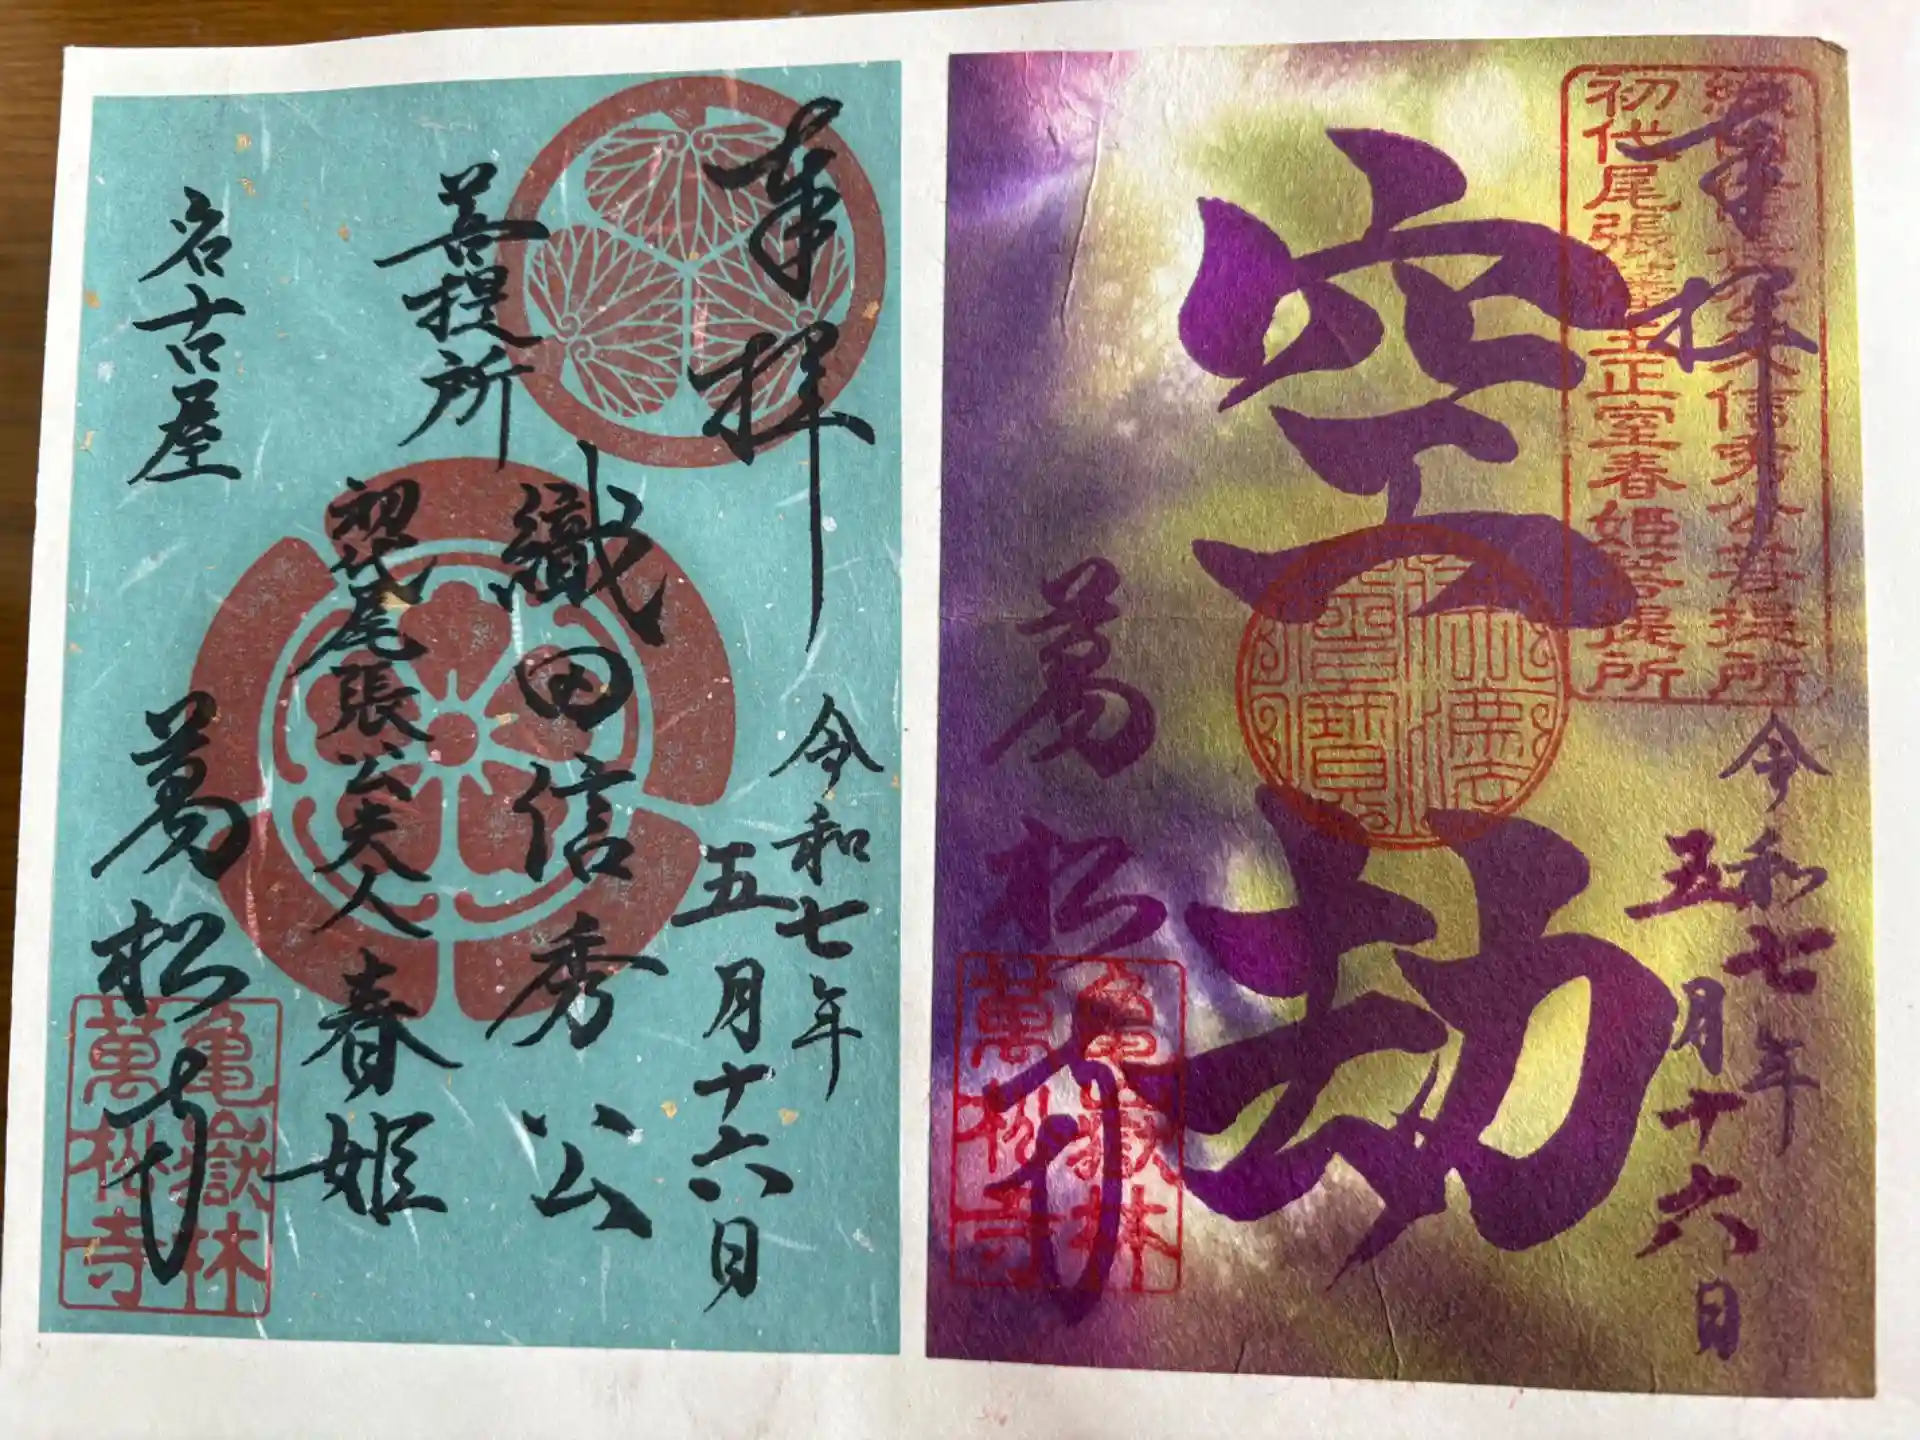 奉拝
令和七年
五月十六日
菩提所
織田信秀公
初代尾張公夫人春姫
名古屋
萬松寺
亀嶽林
萬松寺
奉拝
信秀公菩提所
初代尾張藩主正室春姫菩提所
令和七年
五月十六日
空劫
佛法僧寶
萬松寺
亀嶽林
萬松寺